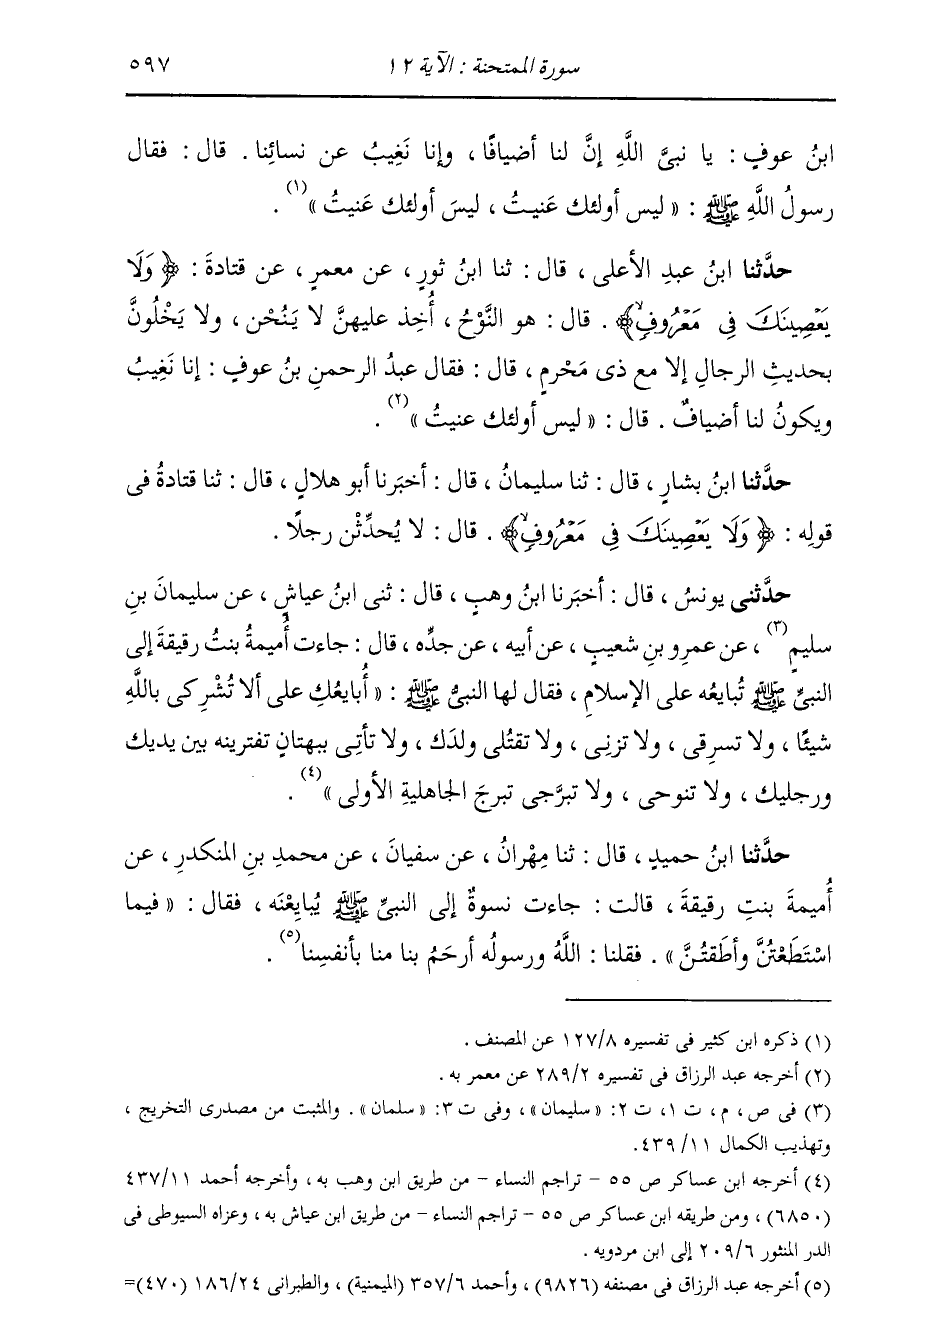 سورة الممتحنة : الآية ١٢ ٥٩٧
ابنُ عوفٍ : يا نبىَّ اللَّهِ إنَّ لنا أضيافًا ، وإنا نَغِيبُ عن نسائِنا . قال : فقال
رسولُ اللَّهِ ﷺ : « ليس أولئك عَنيتُ ، ليسَ أولئك عَنيتُ »(١) .
حدَّثنا ابنُ عبدِ الأعلى ، قال : ثنا ابنُ ثورٍ ، عن معمرٍ ، عن قتادةَ : ﴿ وَلَا
يَعْصِينَكَ فِى مَعْرُوفٍ ﴾ . قال : هو النَّوْحُ ، أُخِذ عليهنَّ لا يَنُحْن ، ولا يَخْلُونَّ
بحديثِ الرجالِ إلا مع ذى مَحْرمٍ ، قال : فقال عبدُ الرحمنِ بنُ عوفٍ : إنا نَغِيبُ
ويكونُ لنا أضيافٌ . قال : « ليس أولئك عنيتُ »(٢) .
حدَّثنا ابنُ بشارٍ ، قال : ثنا سليمانُ ، قال : أخبَرنا أبو هلالٍ ، قال : ثنا قتادةُ فى
قولِه : ﴿ وَلَا يَعْصِينَكَ فِى مَعْرُوفٍ ﴾ . قال : لا يُحدِّثْن رجلًا .
حدَّثنى يونسُ ، قال : أخبَرنا ابنُ وهبٍ ، قال : ثنى ابنُ عياشٍ ، عن سليمانَ بنِ
سليمٍ(٣) ، عن عمرِو بنِ شعيبٍ ، عن أبيه ، عن جدِّه ، قال : جاءت أُميمةُ بنتُ رقيقةَ إلى
النبىِّ ﷺ تُبايعُه على الإسلامِ ، فقال لها النبىُّ ﷺ : « أُبايعُكِ على ألا تُشْرِكى باللَّهِ
شيئًا ، ولا تسرِقى ، ولا تزنِى ، ولا تقتُلى ولدَك ، ولا تأتِى ببهتانٍ تفترينه بين يديك
ورجليك ، ولا تنوحى ، ولا تبرَّجى تبرجَ الجاهليةِ الأولى »(٤) .
حدَّثنا ابنُ حميدٍ ، قال : ثنا مِهْرانُ ، عن سفيانَ ، عن محمدِ بنِ المنكدرِ ، عن
أُميمةَ بنتِ رقيقةَ ، قالت : جاءت نسوةٌ إلى النبىِّ ﷺ يُبايِعْنَه ، فقال : « فيما
اسْتَطَعْتُنَّ وأطَقتُنَّ » . فقلنا : اللَّهُ ورسولُه أرحَمُ بنا منا بأنفسِنا(٥) .
(١) ذكره ابن كثير فى تفسيره ١٢٧/٨ عن المصنف .
(٢) أخرجه عبد الرزاق فى تفسيره ٢٨٩/٢ عن معمر به .
(٣) فى ص ، م ، ت ١، ت ٢: « سليمان » ، وفى ت ٣: « سلمان » . والمثبت من مصدرى التخريج ،
وتهذيب الكمال ١١/ ٤٣٩.
(٤) أخرجه ابن عساكر ص ٥٥ - تراجم النساء - من طريق ابن وهب به ، وأخرجه أحمد ٤٣٧/١١
(٦٨٥٠) ، ومن طريقه ابن عساكر ص ٥٥ - تراجم النساء - من طريق ابن عياش به ، وعزاه السيوطى فى
الدر المنثور ٢٠٩/٦ إلى ابن مردويه .
(٥) أخرجه عبد الرزاق فى مصنفه (٩٨٢٦) ، وأحمد ٣٥٧/٦ (الميمنية) ، والطبرانى ١٨٦/٢٤ (٤٧٠)=